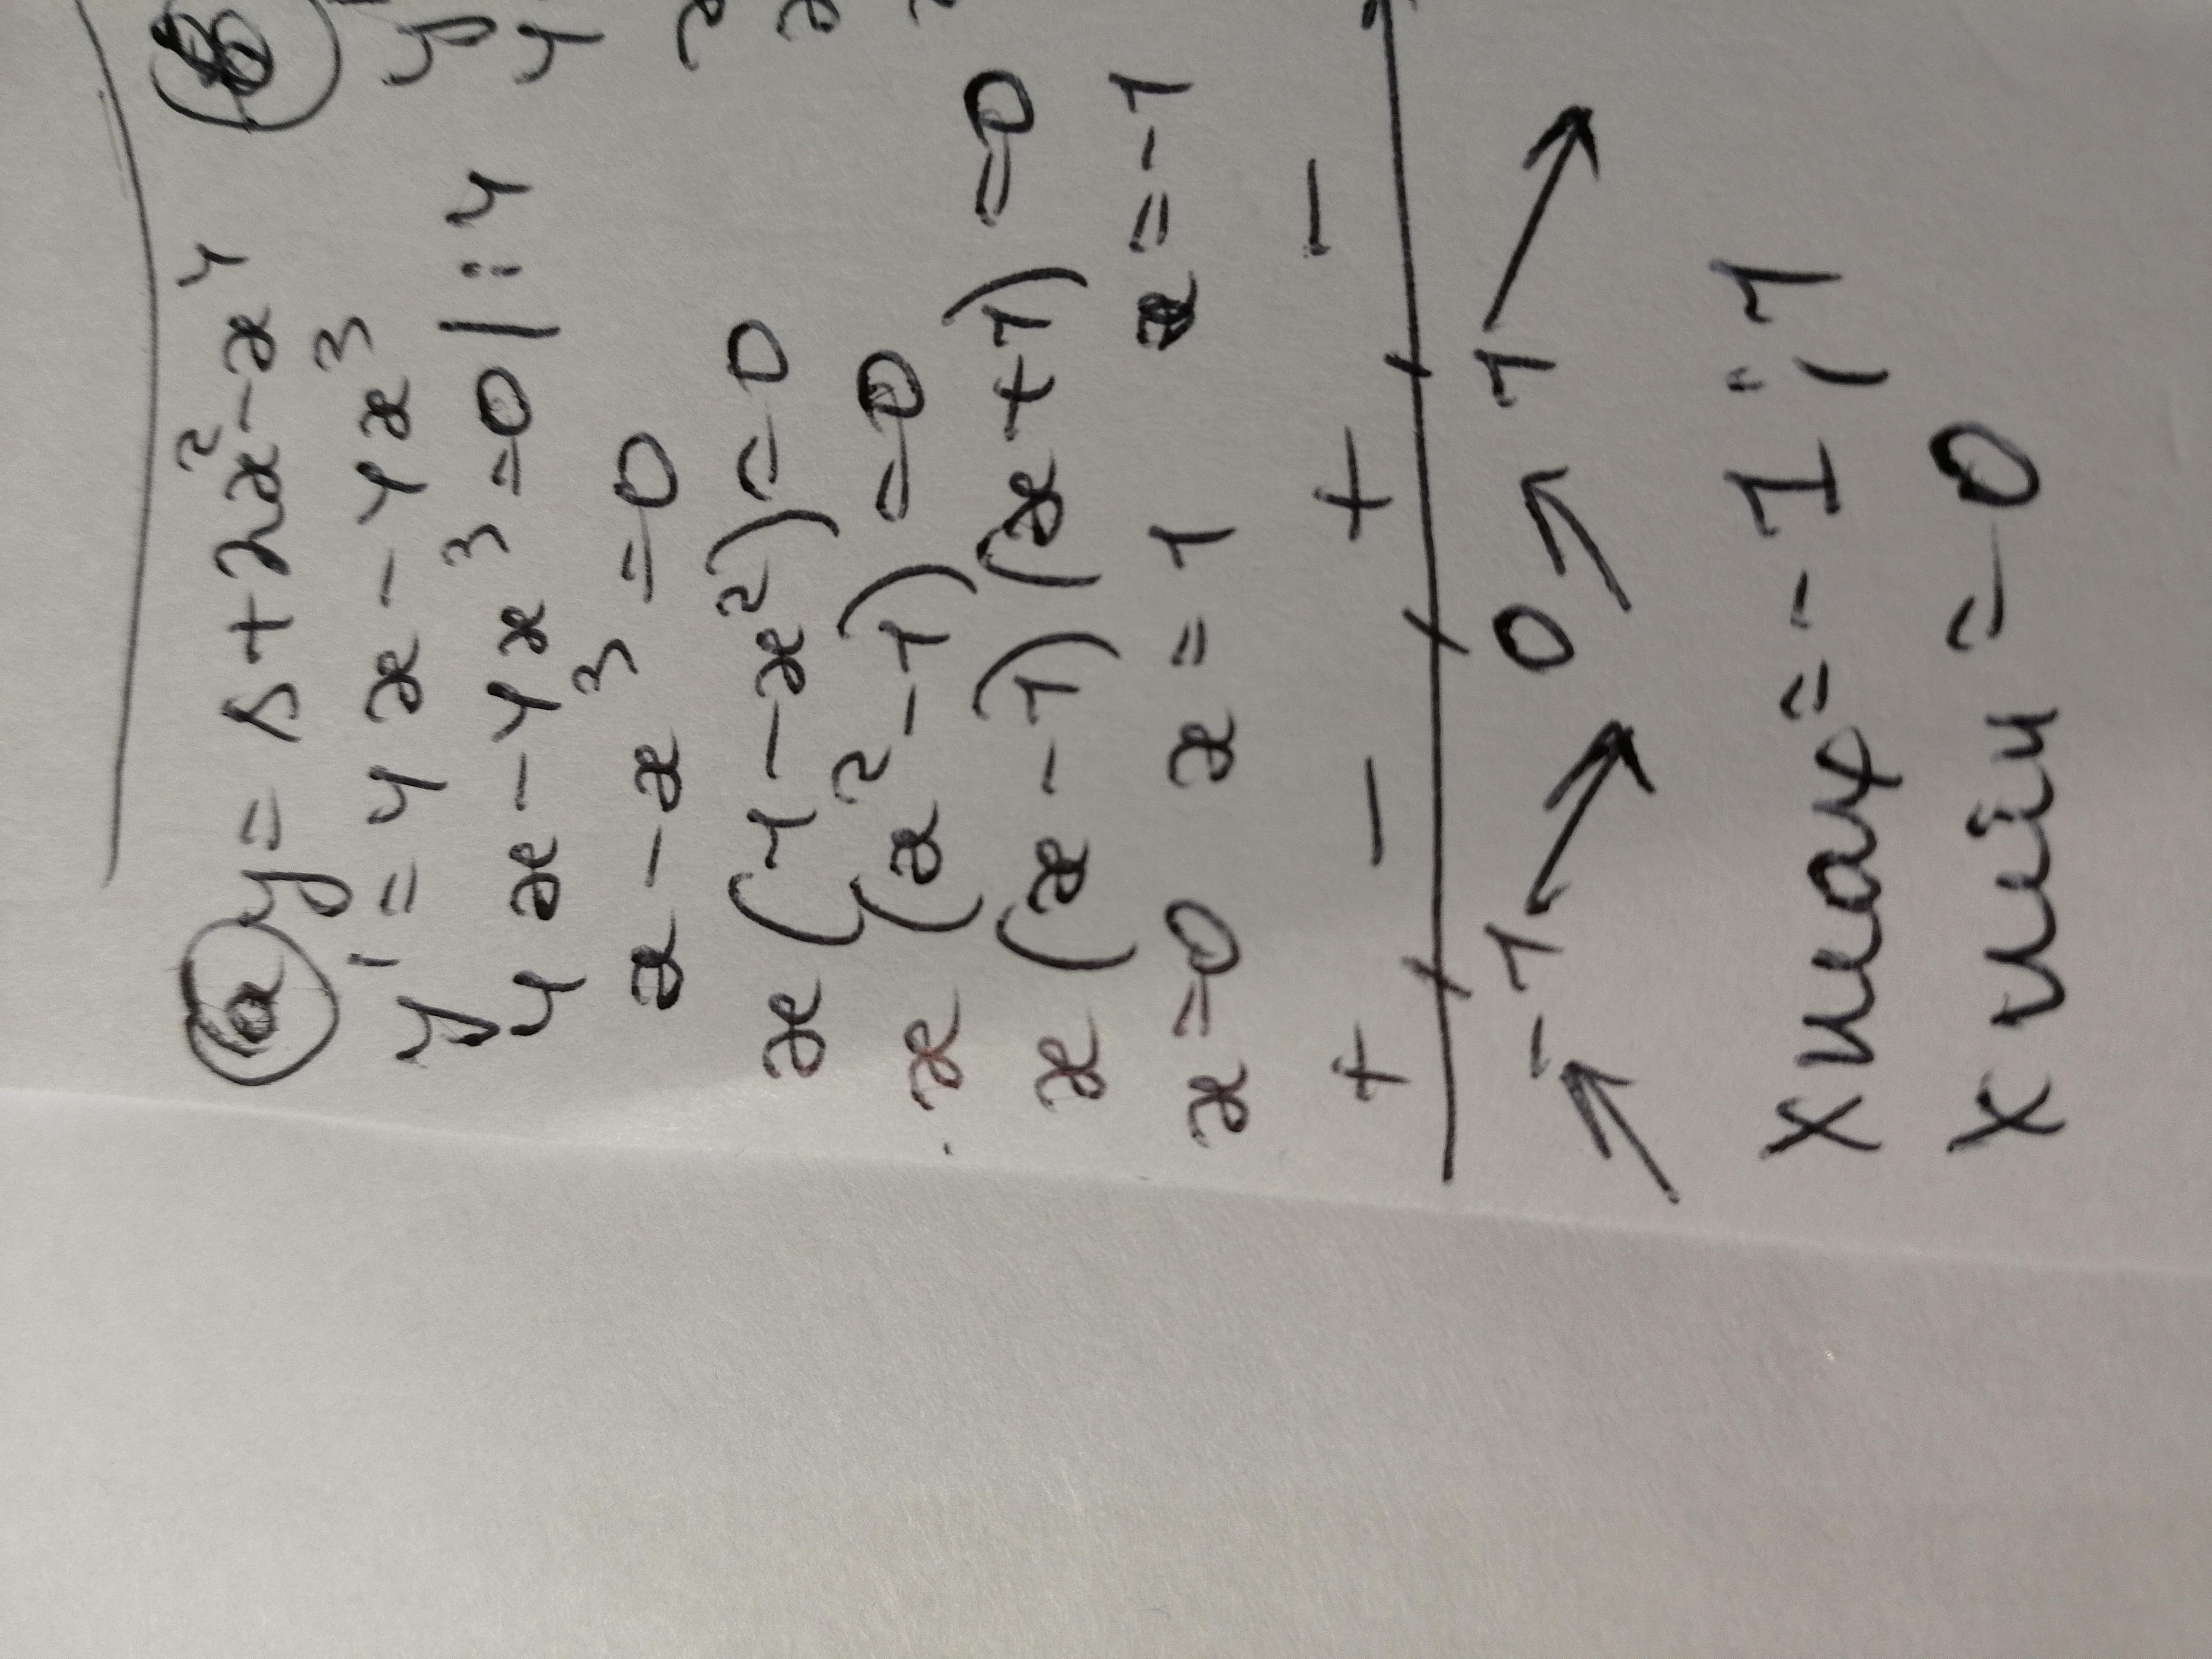 а) y = 1 + 2x² - x⁴
y' = 4x - 4x³
4x - 4x³ = 0 | : 4
x - x³ = 0
x (1 - x²) = 0
x (x² - 1) = 0
x (x - 1) (x + 1) = 0
x = 0 x = 1 x = -1
+ - + -
-1 0 1
xmax = -1 ; 1
xmin = 0